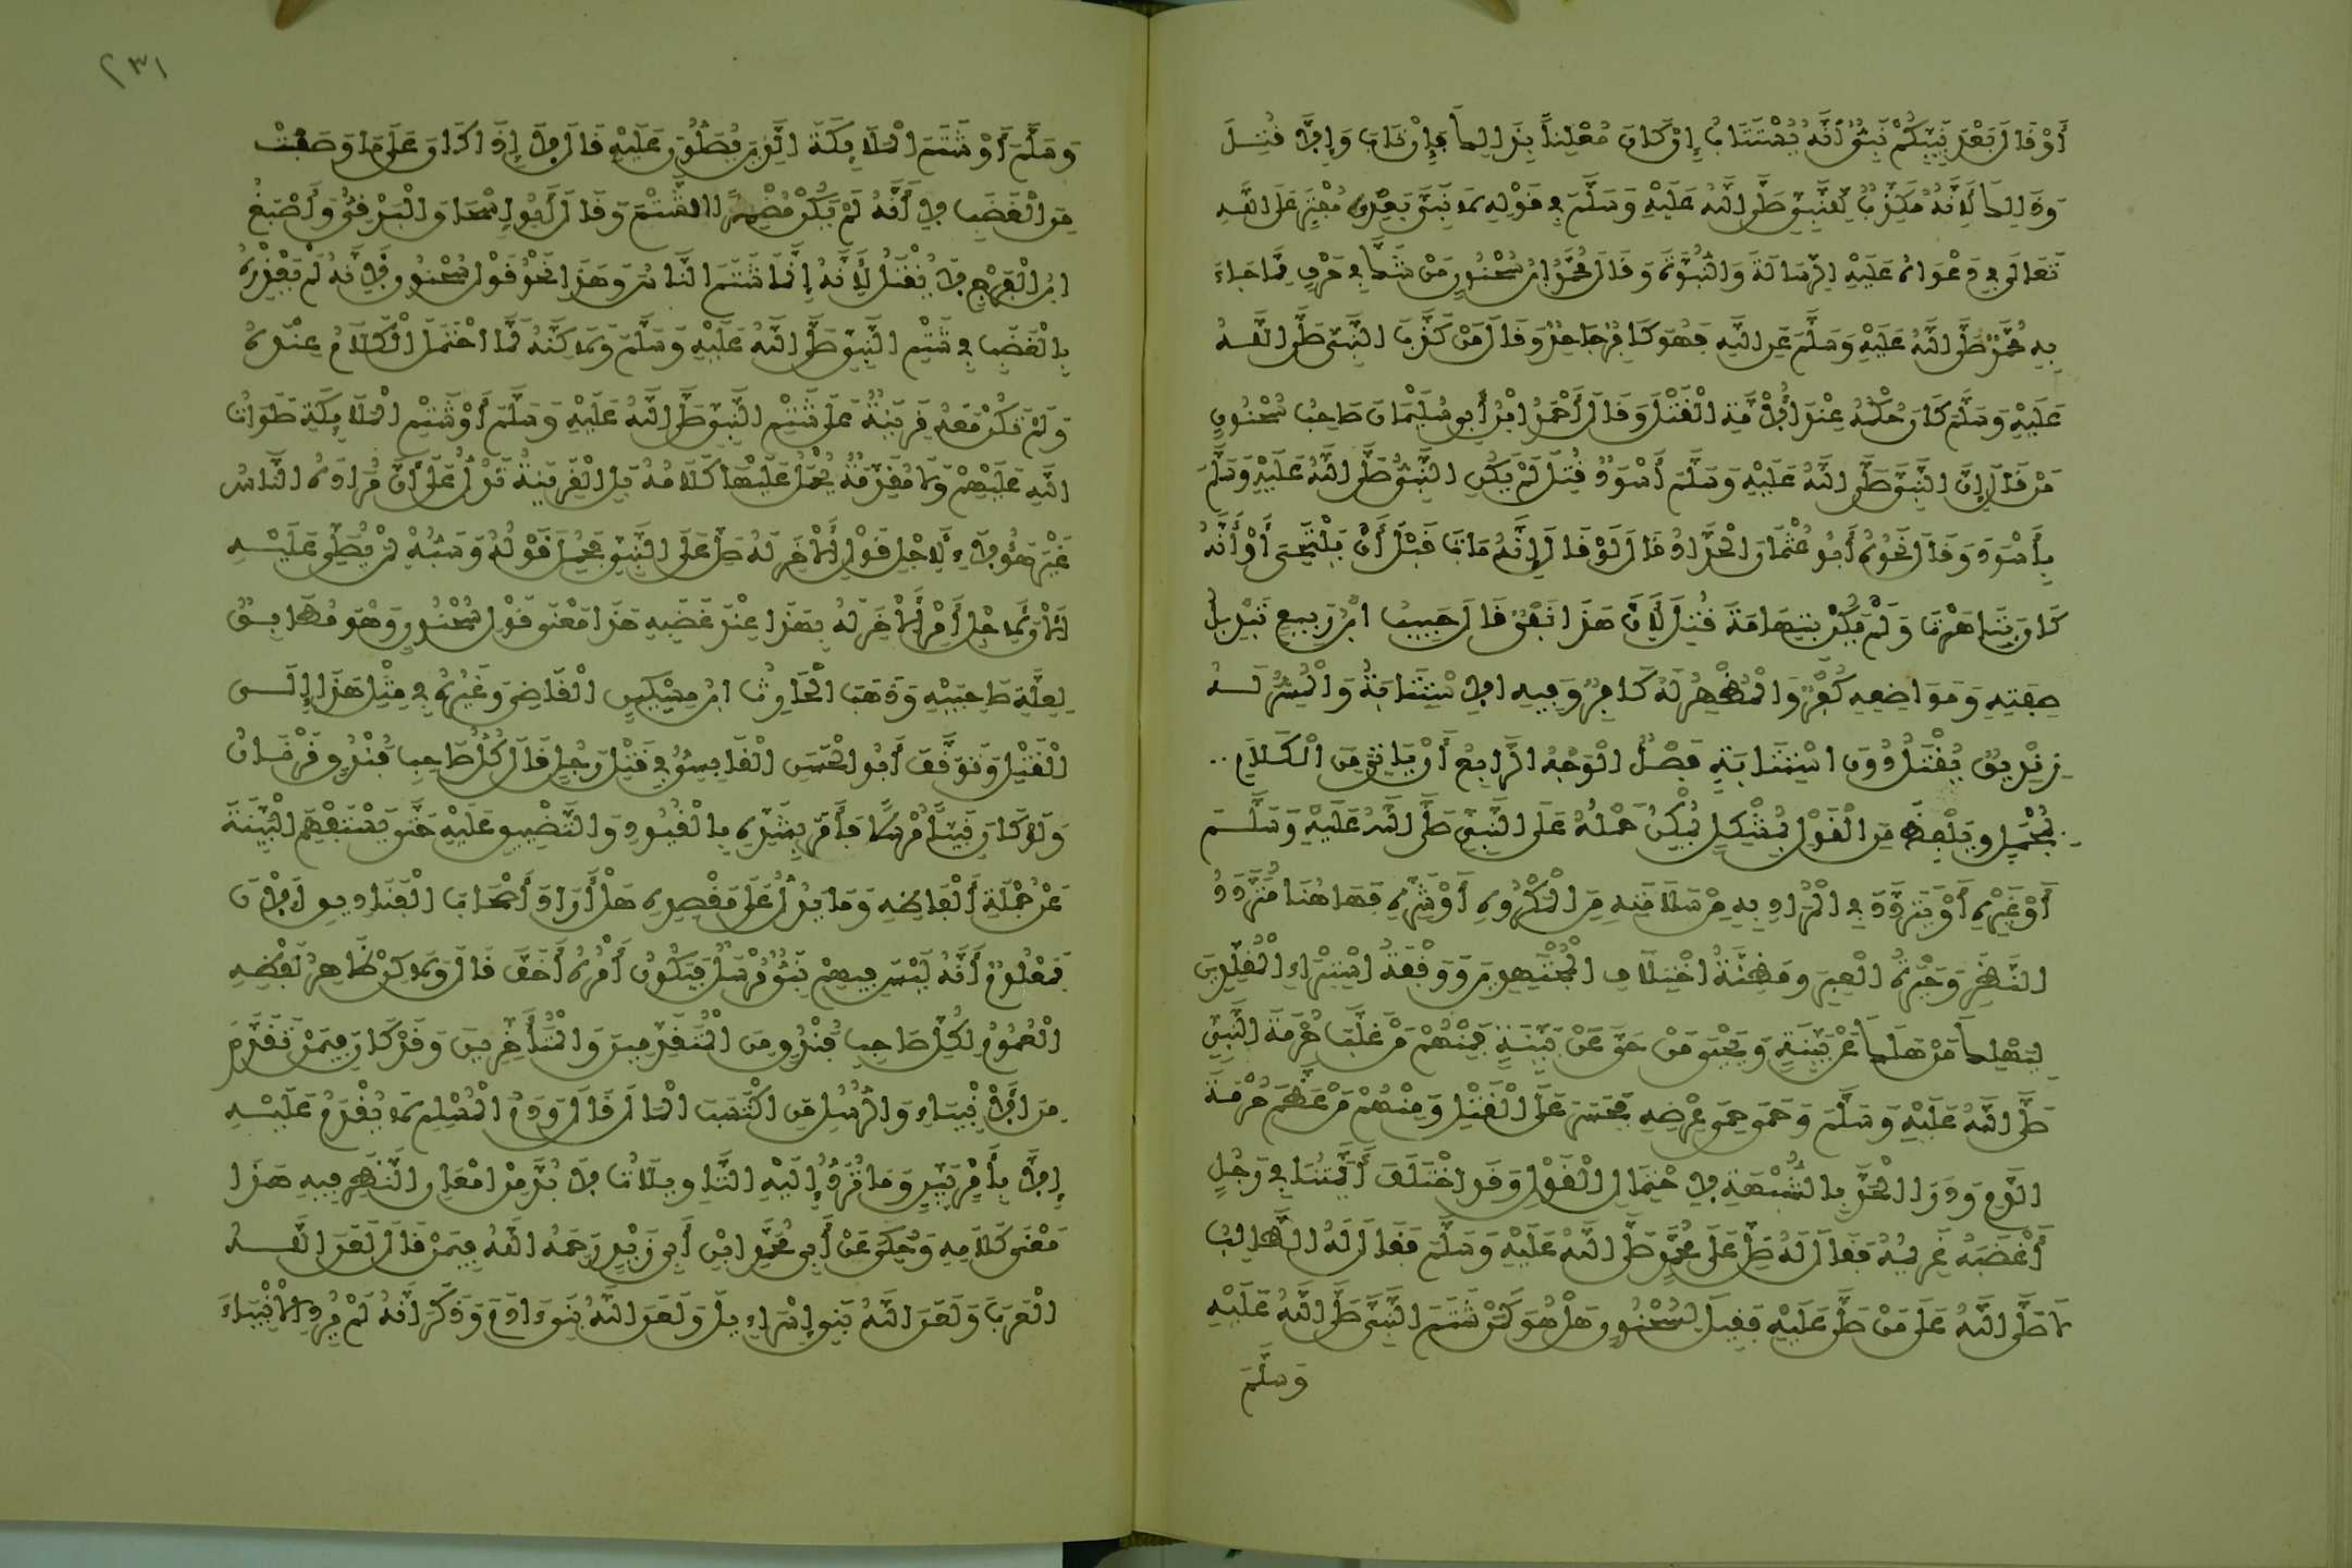 أَوْ قَالَ بَعْدَ نَبِيِّكُمْ نَبِيٌّ أَنَّهُ يُسْتَتَابُ إِنْ كَانَ مُعْلِناً بِذَالِكَ فَإِنْ تَابَ وَإِلَّا قُتِلَ
وَذَالِكَ لِأَنَّهُ مُكَذِّبٌ لِلنَّبِيِّ صَلَّى اللَّهُ عَلَيْهِ وَسَلَّمَ فِي قَوْلِهِ لَا نَبِيَّ بَعْدِي مُفْتَرٍ عَلَى اللَّهِ
تَعَالَى فِي دَعْوَاهُ عَلَيْهِ الرِّسَالَةَ وَالنُّبُوَّةَ وَقَالَ مُحَمَّدُ ابْنُ سُحْنُونٍ مَنْ شَكَّ فِي حَرْفٍ مِمَّا جَاءَ
بِهِ مُحَمَّدٌ صَلَّى اللَّهُ عَلَيْهِ وَسَلَّمَ عَنِ اللَّهِ فَهُوَ كَافِرٌ جَاحِدٌ وَقَالَ مَنْ كَذَّبَ النَّبِيَّ صَلَّى اللَّهُ
عَلَيْهِ وَسَلَّمَ كَانَ حُكْمُهُ عِنْدَ الْأُمَّةِ الْقَتْلَ وَقَالَ أَحْمَدُ ابْنُ أَبِي سُلَيْمَانَ صَاحِبُ سُحْنُونٍ
مَنْ قَالَ إِنَّ النَّبِيَّ صَلَّى اللَّهُ عَلَيْهِ وَسَلَّمَ أَسْوَدُ قُتِلَ لَمْ يَكُنِ النَّبِيُّ صَلَّى اللَّهُ عَلَيْهِ وَسَلَّمَ
بِأَسْوَدَ وَقَالَ نَحْوَهُ أَبُو عُثْمَانَ الْحَدَّادُ قَالَ لَوْ قَالَ إِنَّهُ مَاتَ قَبْلَ أَنْ يَلْتَحِيَ أَوْ أَنَّهُ
كَانَ بِتَاهَرْتَ وَلَمْ يَكُنْ بِتِهَامَةَ قُتِلَ لِأَنَّ هَذَا نَفْيٌ قَالَ حَبِيبُ ابْنُ رَبِيعٍ تَبْدِيلُ
صِفَتِهِ وَمَوَاضِعِهِ كُفْرٌ وَالْمُظْهِرُ لَهُ كَافِرٌ وَفِيهِ الِاسْتِتَابَةُ وَالْمُسِرُّ لَهُ
زِنْدِيقٌ يُقْتَلُ دُونَ اسْتِتَابَةٍ فَصْلٌ الْوَجْهُ الرَّابِعُ أَنْ يَاتِيَ مِنَ الْكَلَامِ
بِمُجْمَلٍ وَيَلْفِظَ مِنَ الْقَوْلِ بِمُشْكِلٍ يُمْكِنُ حَمْلُهُ عَلَى النَّبِيِّ صَلَّى اللَّهُ عَلَيْهِ وَسَلَّمَ
أَوْ غَيْرِهِ أَوْ يَتَرَدَّدَ فِي الْمُرَادِ بِهِ مِنْ سَلَامَتِهِ مِنَ الْمَكْرُوهِ أَوْ شَرِّهِ فَهَاهُنَا مُتَرَدَّدُ
النَّظَرِ وَحَيْرَةُ الْعِبَرِ وَمَظِنَّةُ اخْتِلَافِ الْمُجْتَهِدِينَ وَوَقْفَةُ اسْتِبْرَاءِ الْمُقَلِّدِينَ
لِيَهْلِكَ مَنْ هَلَكَ عَنْ بَيِّنَةٍ وَيَحْيَى مَنْ حَيَّ عَنْ بَيِّنَةٍ فَمِنْهُمْ مَنْ غَلَّبَ حُرْمَةَ النَّبِيِّ
صَلَّى اللَّهُ عَلَيْهِ وَسَلَّمَ وَحَمَى حِمَى عِرْضِهِ فَجَسَرَ عَلَى الْقَتْلِ وَمِنْهُمْ مَنْ عَظَّمَ حُرْمَةَ
الدَّمِ وَدَرَأَ الْحَدَّ بِالشُّبْهَةِ لِاحْتِمَالِ الْقَوْلِ وَقَدِ اخْتَلَفَ أَئِمَّتُنَا فِي رَجُلٍ
أَغْضَبَهُ غَرِيمُهُ فَقَالَ لَهُ صَلِّ عَلَى مُحَمَّدٍ صَلَّى اللَّهُ عَلَيْهِ وَسَلَّمَ فَقَالَ لَهُ الطَّالِبُ
لَا صَلَّى اللَّهُ عَلَى مَنْ صَلَّى عَلَيْهِ فَقِيلَ لِسُحْنُونٍ هَلْ هُوَ كَمَنْ شَتَمَ النَّبِيَّ صَلَّى اللَّهُ عَلَيْهِ
وَسَلَّمَ
٢٣١
وَسَلَّمَ أَوْ شَتَمَ الْمَلَائِكَةَ الَّذِينَ يُصَلُّونَ عَلَيْهِ قَالَ لَا إِذَا كَانَ عَلَى مَا وَصَفْتَ
مِنَ الْغَضَبِ لِأَنَّهُ لَمْ يَكُنْ مُضْمِرًا الشَّتْمَ وَقَالَ أَبُو إِسْحَاقَ الْبَرْقِيُّ وَأَصْبَغُ
ابْنُ الْفَرَجِ لَا يُقْتَلُ لِأَنَّهُ إِنَّمَا شَتَمَ النَّاسَ وَهَذَا نَحْوُ قَوْلِ سُحْنُونٍ لِأَنَّهُ لَمْ يَعْذِرْهُ
بِالْغَضَبِ فِي شَتْمِ النَّبِيِّ صَلَّى اللَّهُ عَلَيْهِ وَسَلَّمَ وَلَاكِنَّهُ لَمَّا احْتَمَلَ الْكَلَامُ عِنْدَهُ
وَلَمْ تَكُنْ مَعَهُ قَرِينَةٌ عَلَى شَتْمِ النَّبِيِّ صَلَّى اللَّهُ عَلَيْهِ وَسَلَّمَ أَوْ شَتْمِ الْمَلَائِكَةِ صَلَوَاتُ
اللَّهِ عَلَيْهِمْ وَلَا مُقَدِّمَةٌ يُحْمَلُ عَلَيْهَا كَلَامُهُ بَلِ الْقَرِينَةُ تَدُلُّ عَلَى أَنَّ مُرَادَهُ النَّاسُ
غَيْرَ هَؤُلَاءِ لِأَجْلِ قَوْلِ الْآخَرِ لَهُ صَلِّ عَلَى النَّبِيِّ فَحُمِلَ قَوْلُهُ وَسَبُّهُ لِمَنْ يُصَلِّي عَلَيْهِ
الْآنَ لِأَجْلِ أَمْرِ الْآخَرِ لَهُ بِهَذَا عِنْدَ غَضَبِهِ هَذَا مَعْنَى قَوْلِ سُحْنُونٍ وَهُوَ مُطَابِقٌ
لِعِلَّةِ صَاحِبَيْهِ وَذَهَبَ الْحَارِثُ ابْنُ مِسْكِينٍ الْقَاضِي وَغَيْرُهُ فِي مِثْلِ هَذَا إِلَى
الْقَتْلِ وَتَوَقَّفَ أَبُو الْحَسَنِ الْقَابِسِيُّ فِي قَتْلِ رَجُلٍ قَالَ كُلُّ صَاحِبِ فُنْدُقٍ قَرْنَانٌ
وَلَوْ كَانَ نَبِيّاً مُرْسَلاً فَأَمَرَ بِشَدِّهِ بِالْقُيُودِ وَالتَّضْيِيقِ عَلَيْهِ حَتَّى يُسْتَفْهَمَ الْبَيِّنَةَ
عَنْ جُمْلَةِ أَلْفَاظِهِ وَمَا يَدُلُّ عَلَى مَقْصِدِهِ هَلْ أَرَادَ أَصْحَابَ الْفَنَادِيقِ الْآنَ
فَمَعْلُومٌ أَنَّهُ لَيْسَ فِيهِمْ نَبِيٌّ مُرْسَلٌ فَيَكُونُ أَمْرُهُ أَخَفَّ قَالَ وَلَاكِنْ ظَاهِرُ لَفْظِهِ
الْعُمُومُ لِكُلِّ صَاحِبِ فُنْدُقٍ مِنَ الْمُتَقَدِّمِينَ وَالْمُتَأَخِّرِينَ وَقَدْ كَانَ فِيمَنْ تَقَدَّمَ
مِنَ الْأَنْبِيَاءِ وَالرُّسُلِ مَنِ اكْتَسَبَ الْمَالَ قَالَ وَدَمُ الْمُسْلِمِ لَا يُقْدَمُ عَلَيْهِ
إِلَّا بِأَمْرٍ بَيِّنٍ وَمَا تُرَدُّ إِلَيْهِ التَّاوِيلَاتُ لَابُدَّ مِنْ إِمْعَانِ النَّظَرِ فِيهِ هَذَا
مَعْنَى كَلَامِهِ وَحُكِيَ عَنْ أَبِي مُحَمَّدِ ابْنِ أَبِي زَيْدٍ رَحِمَهُ اللَّهُ فِيمَنْ قَالَ لَعَنَ اللَّهُ
الْعَرَبَ وَلَعَنَ اللَّهُ بَنِي إِسْرَاءِيلَ وَلَعَنَ اللَّهُ بَنِي ءَادَمَ وَذَكَرَ أَنَّهُ لَمْ يُرِدِ الْأَنْبِيَاءَ